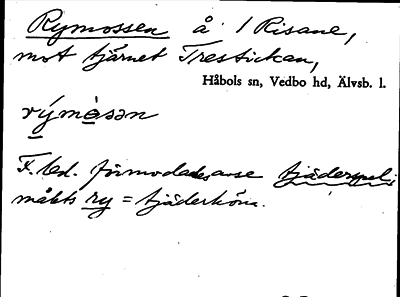 Rymossen å / Risane,
mot tjärnet Trestickan,
Håbols sn, Vedbo hd, Älvsb. l.
rýmòsən
F. led. förmodades avse tjäderspel:
målets ry = tjäderhöna.